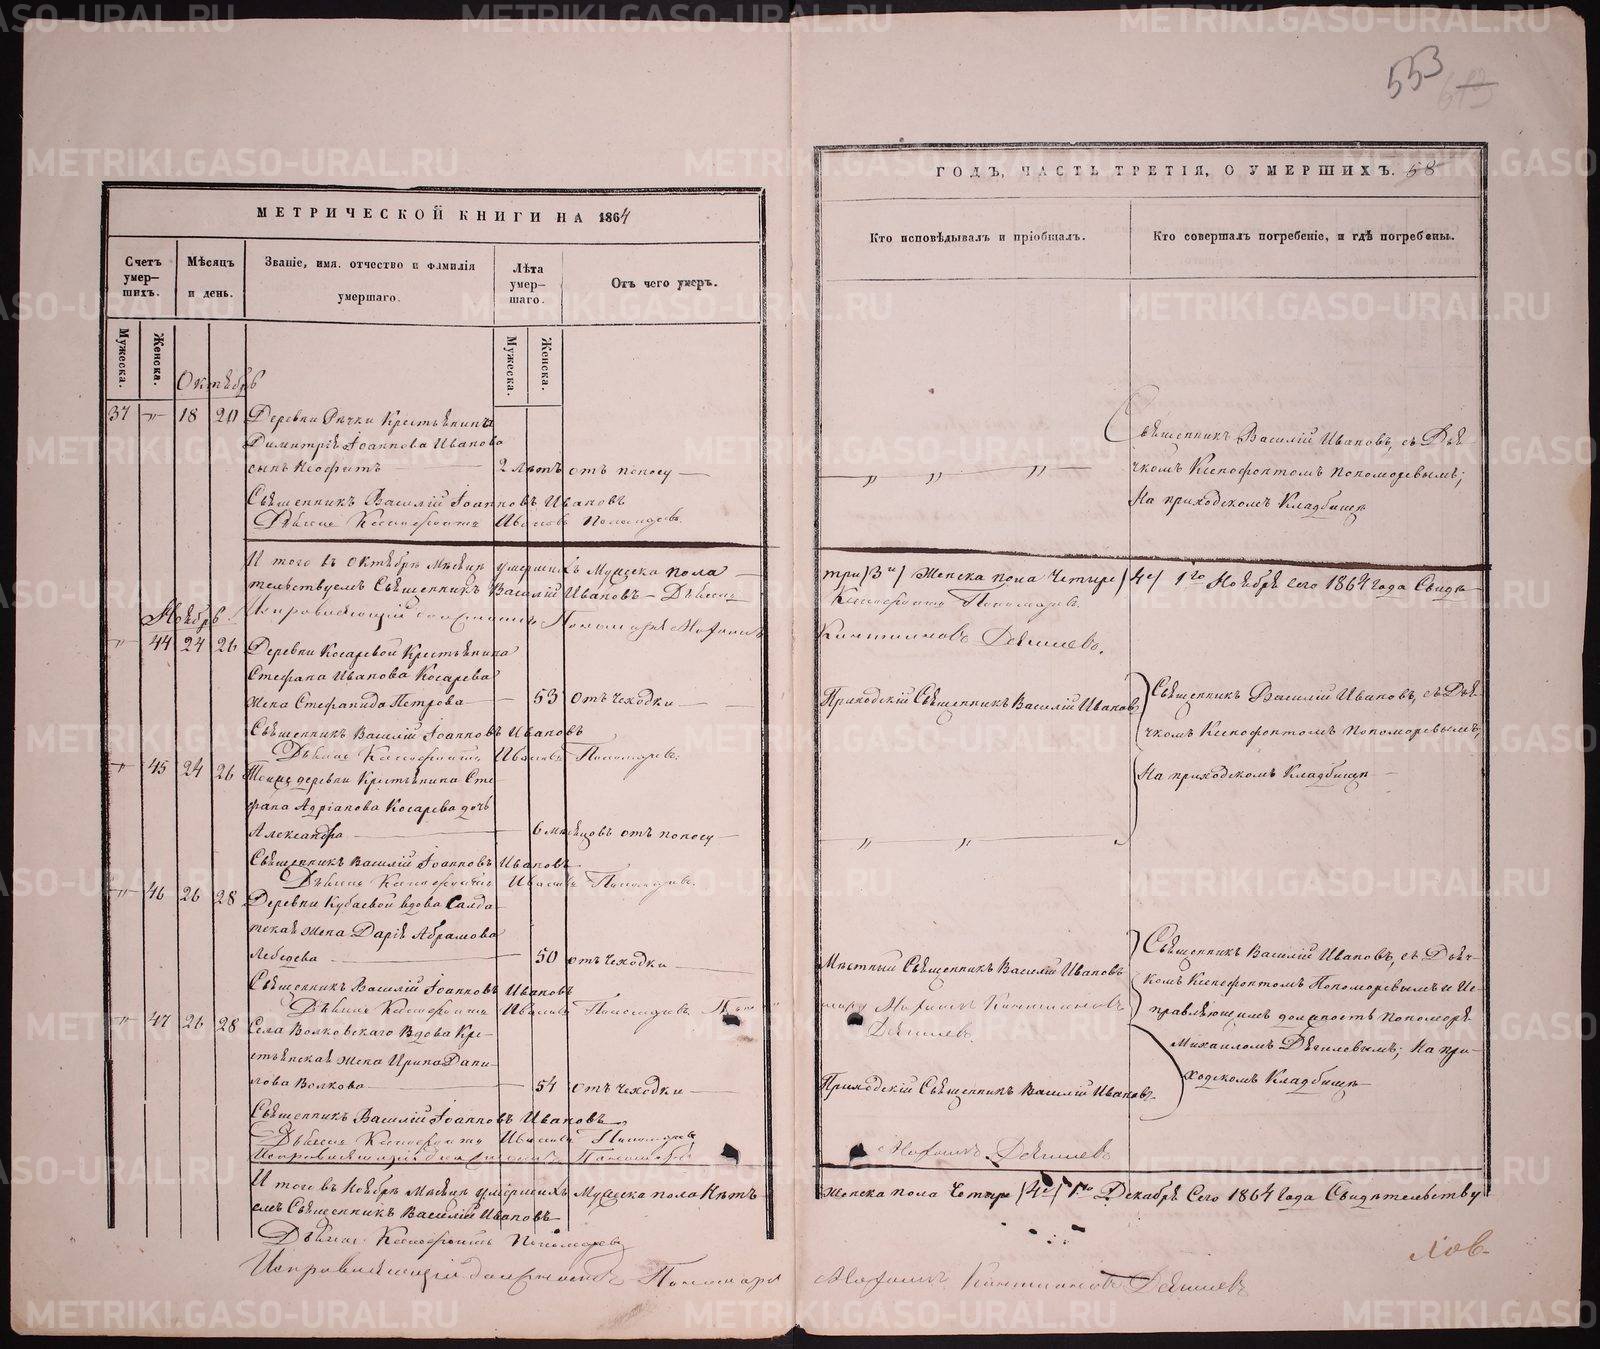 553
МЕТРИЧЕСКОЙ КНИГИ НА 1864
Счетъ умер-шихъ.
Мѣсяцъ и день.
Званіе, имя, отчество и фамилія умершаго.
Лѣта умер-шаго.
Отъ чего умеръ.
Мужеска.
Женска.
Мужеска.
Женска.
Октябрь
37 " 18 20 Деревни Рѣчки Крестьянина
Димитрія Іоаннова Иванова
сынъ Неофитъ 2 лѣтъ отъ поносу
Священникъ Василій Іоанновъ Ивановъ
Дьячекъ Ксенофонтъ Ивановъ Пономаревъ
И того въ Октябрѣ Мѣсяцѣ умершихъ Мужеска пола
тельствуемъ Священникъ Василій Ивановъ Дьячекъ
Ноябрь Исправляющій должность Пономаря Михаилъ
" 44 24 26 Деревни Косаревой Крестьянина
Стефана Иванова Косарева
жена Стефанида Петрова 53 отъ чеходки
Священникъ Василій Іоанновъ Ивановъ
Дьячекъ Ксенофонтъ Ивановъ Пономаревъ
" 45 24 26 Тоиже деревни Крестьянина Сте-
фана Адріанова Косарева дочь
Александра 6 мѣсяцовъ отъ поносу
Священникъ Василій Іоанновъ Ивановъ
Дьячекъ Ксенофонтъ Ивановъ Пономаревъ
" 46 26 28 Деревни Кубаевой вдова Салда-
тская жена Дарія Абрамова
Лебедева 50 отъ чеходки
Священникъ Василій Іоанновъ Ивановъ
Дьячекъ Ксенофонтъ Ивановъ Пономаревъ
" 47 26 28 Села Волковскаго Вдова Кре-
стьянская жена Ирина Дани-
лова Волкова 54 отъ чеходки
Священникъ Василій Іоанновъ Ивановъ
Дьячекъ Ксенофонтъ Ивановъ Пономаревъ
И того въ Ноябрѣ Мѣсяцѣ умершихъ Мужеска пола Нѣтъ
емъ Священникъ Василій Ивановъ
Дьячекъ Ксенофонтъ Пономаревъ
Исправляющій должность Пономаря
ГОДЪ, ЧАСТЬ ТРЕТІЯ, О УМЕРШИХЪ. 58
Кто исповѣдывалъ и пріобщалъ.
Кто совершалъ погребеніе, и гдѣ погребены.
Священникъ Василій Ивановъ, съ Дья-
чкомъ Ксенофонтомъ Пономоревымъ;
На приходскомъ Кладбищѣ
три /3и/ Женска пола Четыре /4е/ 1го Ноября Сего 1864 Года Свидѣ-
Ксенофонтъ Пономаревъ
Дягилевъ.
Приходскій Священникъ Василій Ивановъ
Священникъ Василій Ивановъ, съ Дья-
чкомъ Ксенофонтомъ Пономоревымъ,
На приходскомъ Кладбищѣ
Мѣстный Священникъ Василій Ивановъ
Дягилевъ.
Священникъ Василій Ивановъ, съ Дьяч-
комъ Ксенофонтомъ Пономоревымъ и Ис-
правляющимъ должность Пономоря
Михаиломъ Дягилевымъ; На при-
ходскомъ Кладбищѣ
Приходскій Священникъ Василій Ивановъ
Михаилъ Дягилевъ
Женска пола Четыре /4е/ 1го Декабря Сего 1864 Года Свидѣтельству
Михаилъ Дягилевъ
METRIKI.GASO-URAL.RU